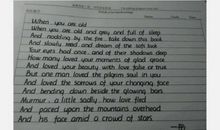 When you are old
When you are old and grey and full of sleep
And nodding by the fire, take down this book
And slowly read, and dream of the soft look
Your eyes had once, and of their shadows deep
How many loved your moments of glad grace
And loved your beauty with love false or true
But one man loved the pilgrim soul in you
And loved the sorrows of your changing face
And bending down beside the glowing bars
Murmur, a little sadly, how love fled
And paced upon the mountains overhead
And his face amid a crowd of stars.